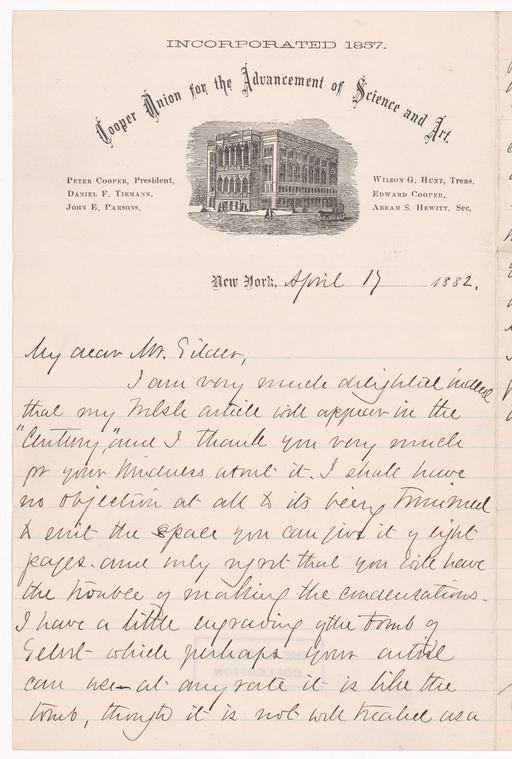 INCORPORATED 1857.
Cooper Union for the Advancement of Science and Art.
PETER COOPER, President,
DANIEL F. TIEMANN,
JOHN E. PARSONS,
WILSON G. HUNT, Treas.
EDWARD COOPER,
ABRAM S. HEWITT, Sec.
New York, April 17 1882.
My dear Mr. Gilder,
I am very much delighted indeed
that my Welsh article will appear in the
"Century," and I thank you very much
for your kindness about it. I shall have
no objection at all to its being trimmed
to suit the space you can give it of eight
pages. and only regret that you will have
the trouble of making the condensations.
I have a little engraving of the tomb of
Gelert which perhaps your artist
can use - at any rate it is like the
tomb, though it is not well treated as a